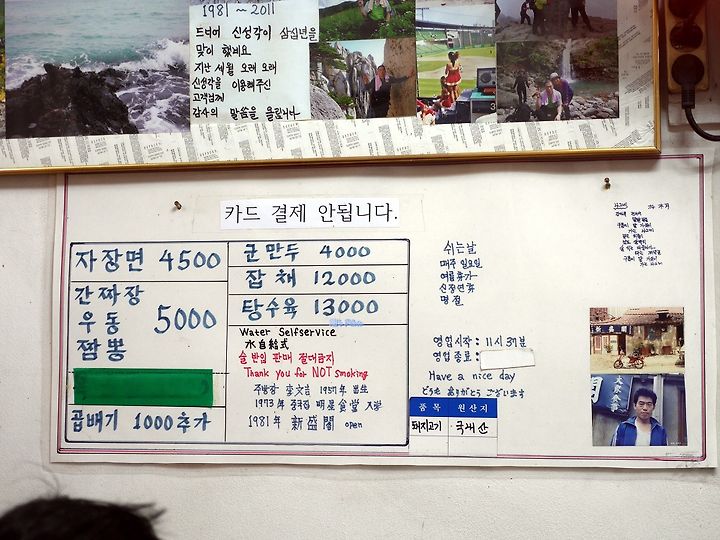 1981 ~ 2011
드디어 신성각이 삼십년을
맞이 했네요
지난 세월 오래 오래
신성각을 이용해주신
고객님께
감사의 말씀을 올립니다
카드 결제 안됩니다.
자장면 4500
간짜장
우동 5000
짬뽕
곱배기 1000추가
군만두 4000
잡채 12000
탕수육 13000
Water Selfservice
水自給式
술 반입 판매 절대금지
Thank you for NOT smoking
주방장 李文吉 1957年 出生
1973年 중국집 明星食堂 入学
1981年 新盛閣 open
쉬는날
매주 일요일
여름휴가
신정연휴
명절
영업시작 : 11시 37분
영업종료 :
Have a nice day
どうも ありがとう ございます
품목 원산지
돼지고기 국내산
新盛閣